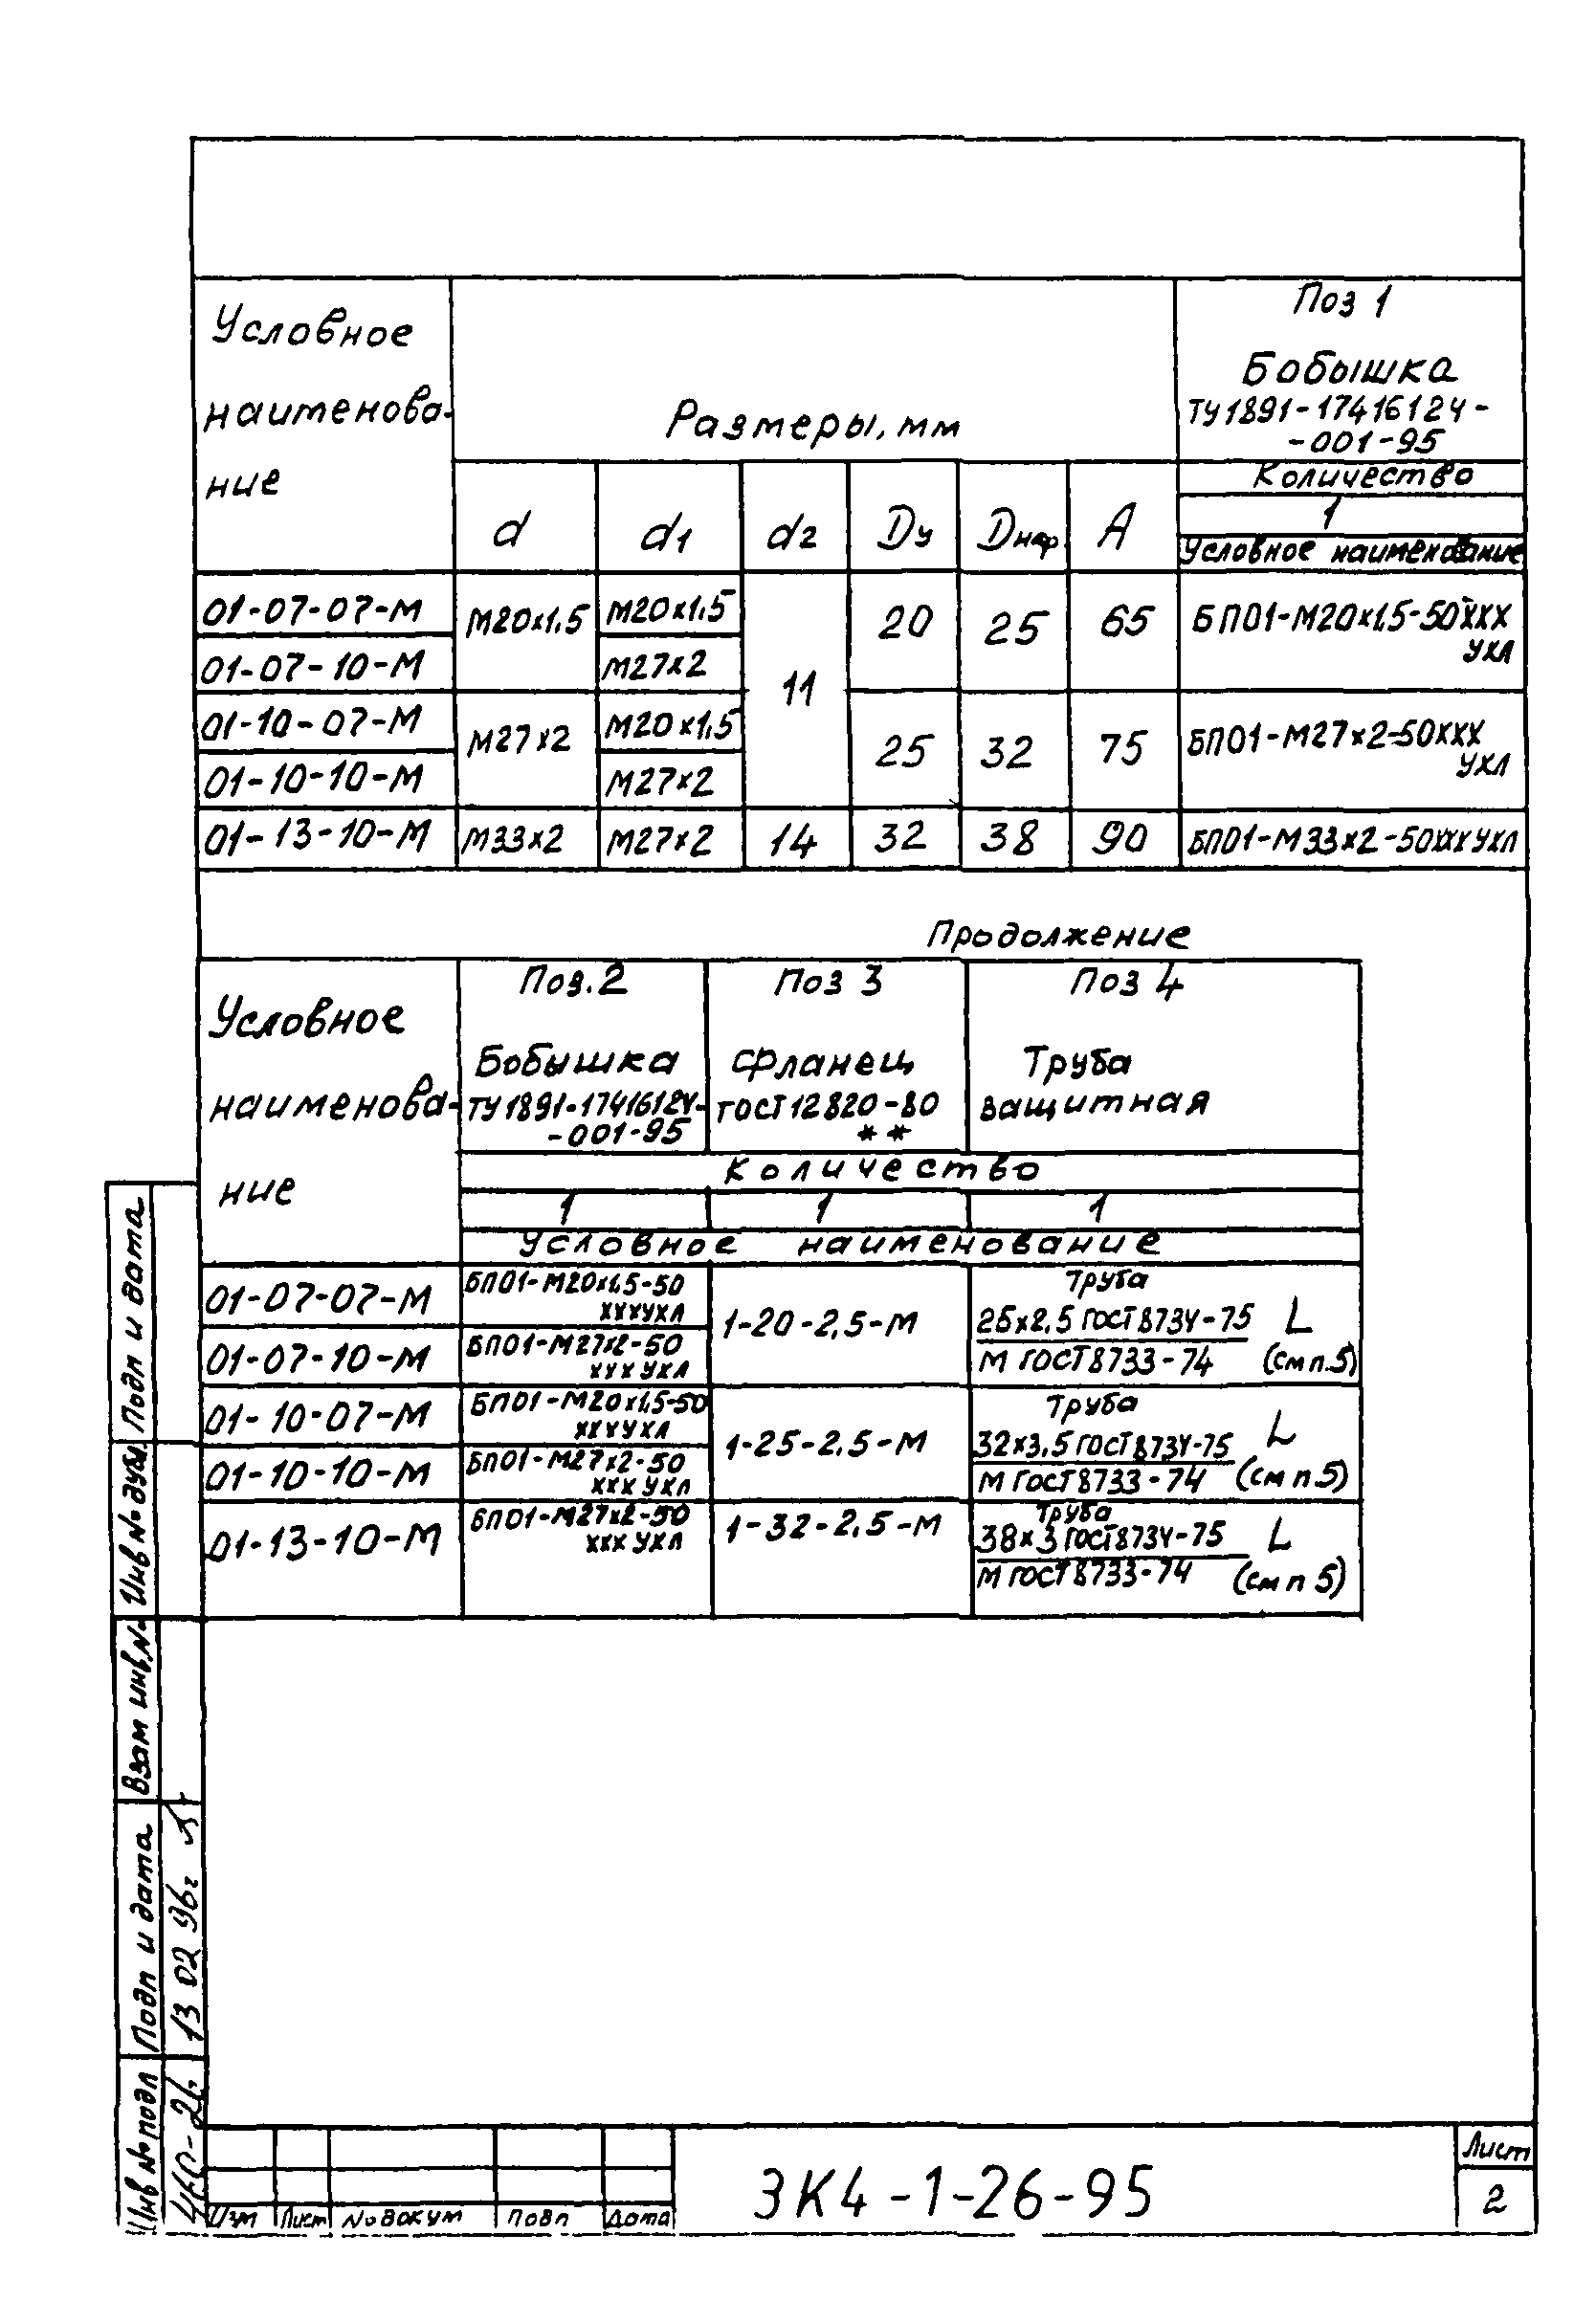 Условное
наименова-
ние
Размеры, мм
Поз 1
Бобышка
ТУ1891-17416124-
-001-95
Количество
1
Условное наименование
d d1 d2 Dу Dнар. А
01-07-07-М М20х1,5 М20х1,5 11 20 25 65 БП01-М20х1,5-50ХХХ
УХЛ
01-07-10-М М27х2
01-10-07-М М27х2 М20х1,5 25 32 75 БП01-М27х2-50ХХХ
УХЛ
01-10-10-М М27х2
01-13-10-М М33х2 М27х2 14 32 38 90 БП01-М33х2-50ХХХУХЛ
Продолжение
Условное
наименова-
ние
Поз.2
Бобышка
ТУ1891-17416124-
-001-95
Поз 3
Фланец
ГОСТ12820-80
**
Поз 4
Труба
защитная
Количество
1 1 1
Условное наименование
01-07-07-М БП01-М20х1,5-50
ХХХУХЛ
01-07-10-М БП01-М27х2-50
ХХХ УХЛ
1-20-2,5-М
Труба
25х2,5 ГОСТ8734-75 L
М ГОСТ8733-74 (см п.5)
01-10-07-М БП01-М20х1,5-50
ХХХУХЛ
01-10-10-М БП01-М27х2-50
ХХХ УХЛ
1-25-2,5-М
Труба
32х3,5 ГОСТ8734-75 L
М ГОСТ8733-74 (см п 5)
01-13-10-М БП01-М27х2-50
ХХХ УХЛ
1-32-2,5-М
Труба
38х3 ГОСТ8734-75 L
М ГОСТ8733-74 (см п 5)
Подп и дата
Инв № дубл.
Взам инв.№
Подп и дата
13 02 96г
Инв № подл
Изм Лист № докум Подп Дата
ЗК4-1-26-95
Лист
2